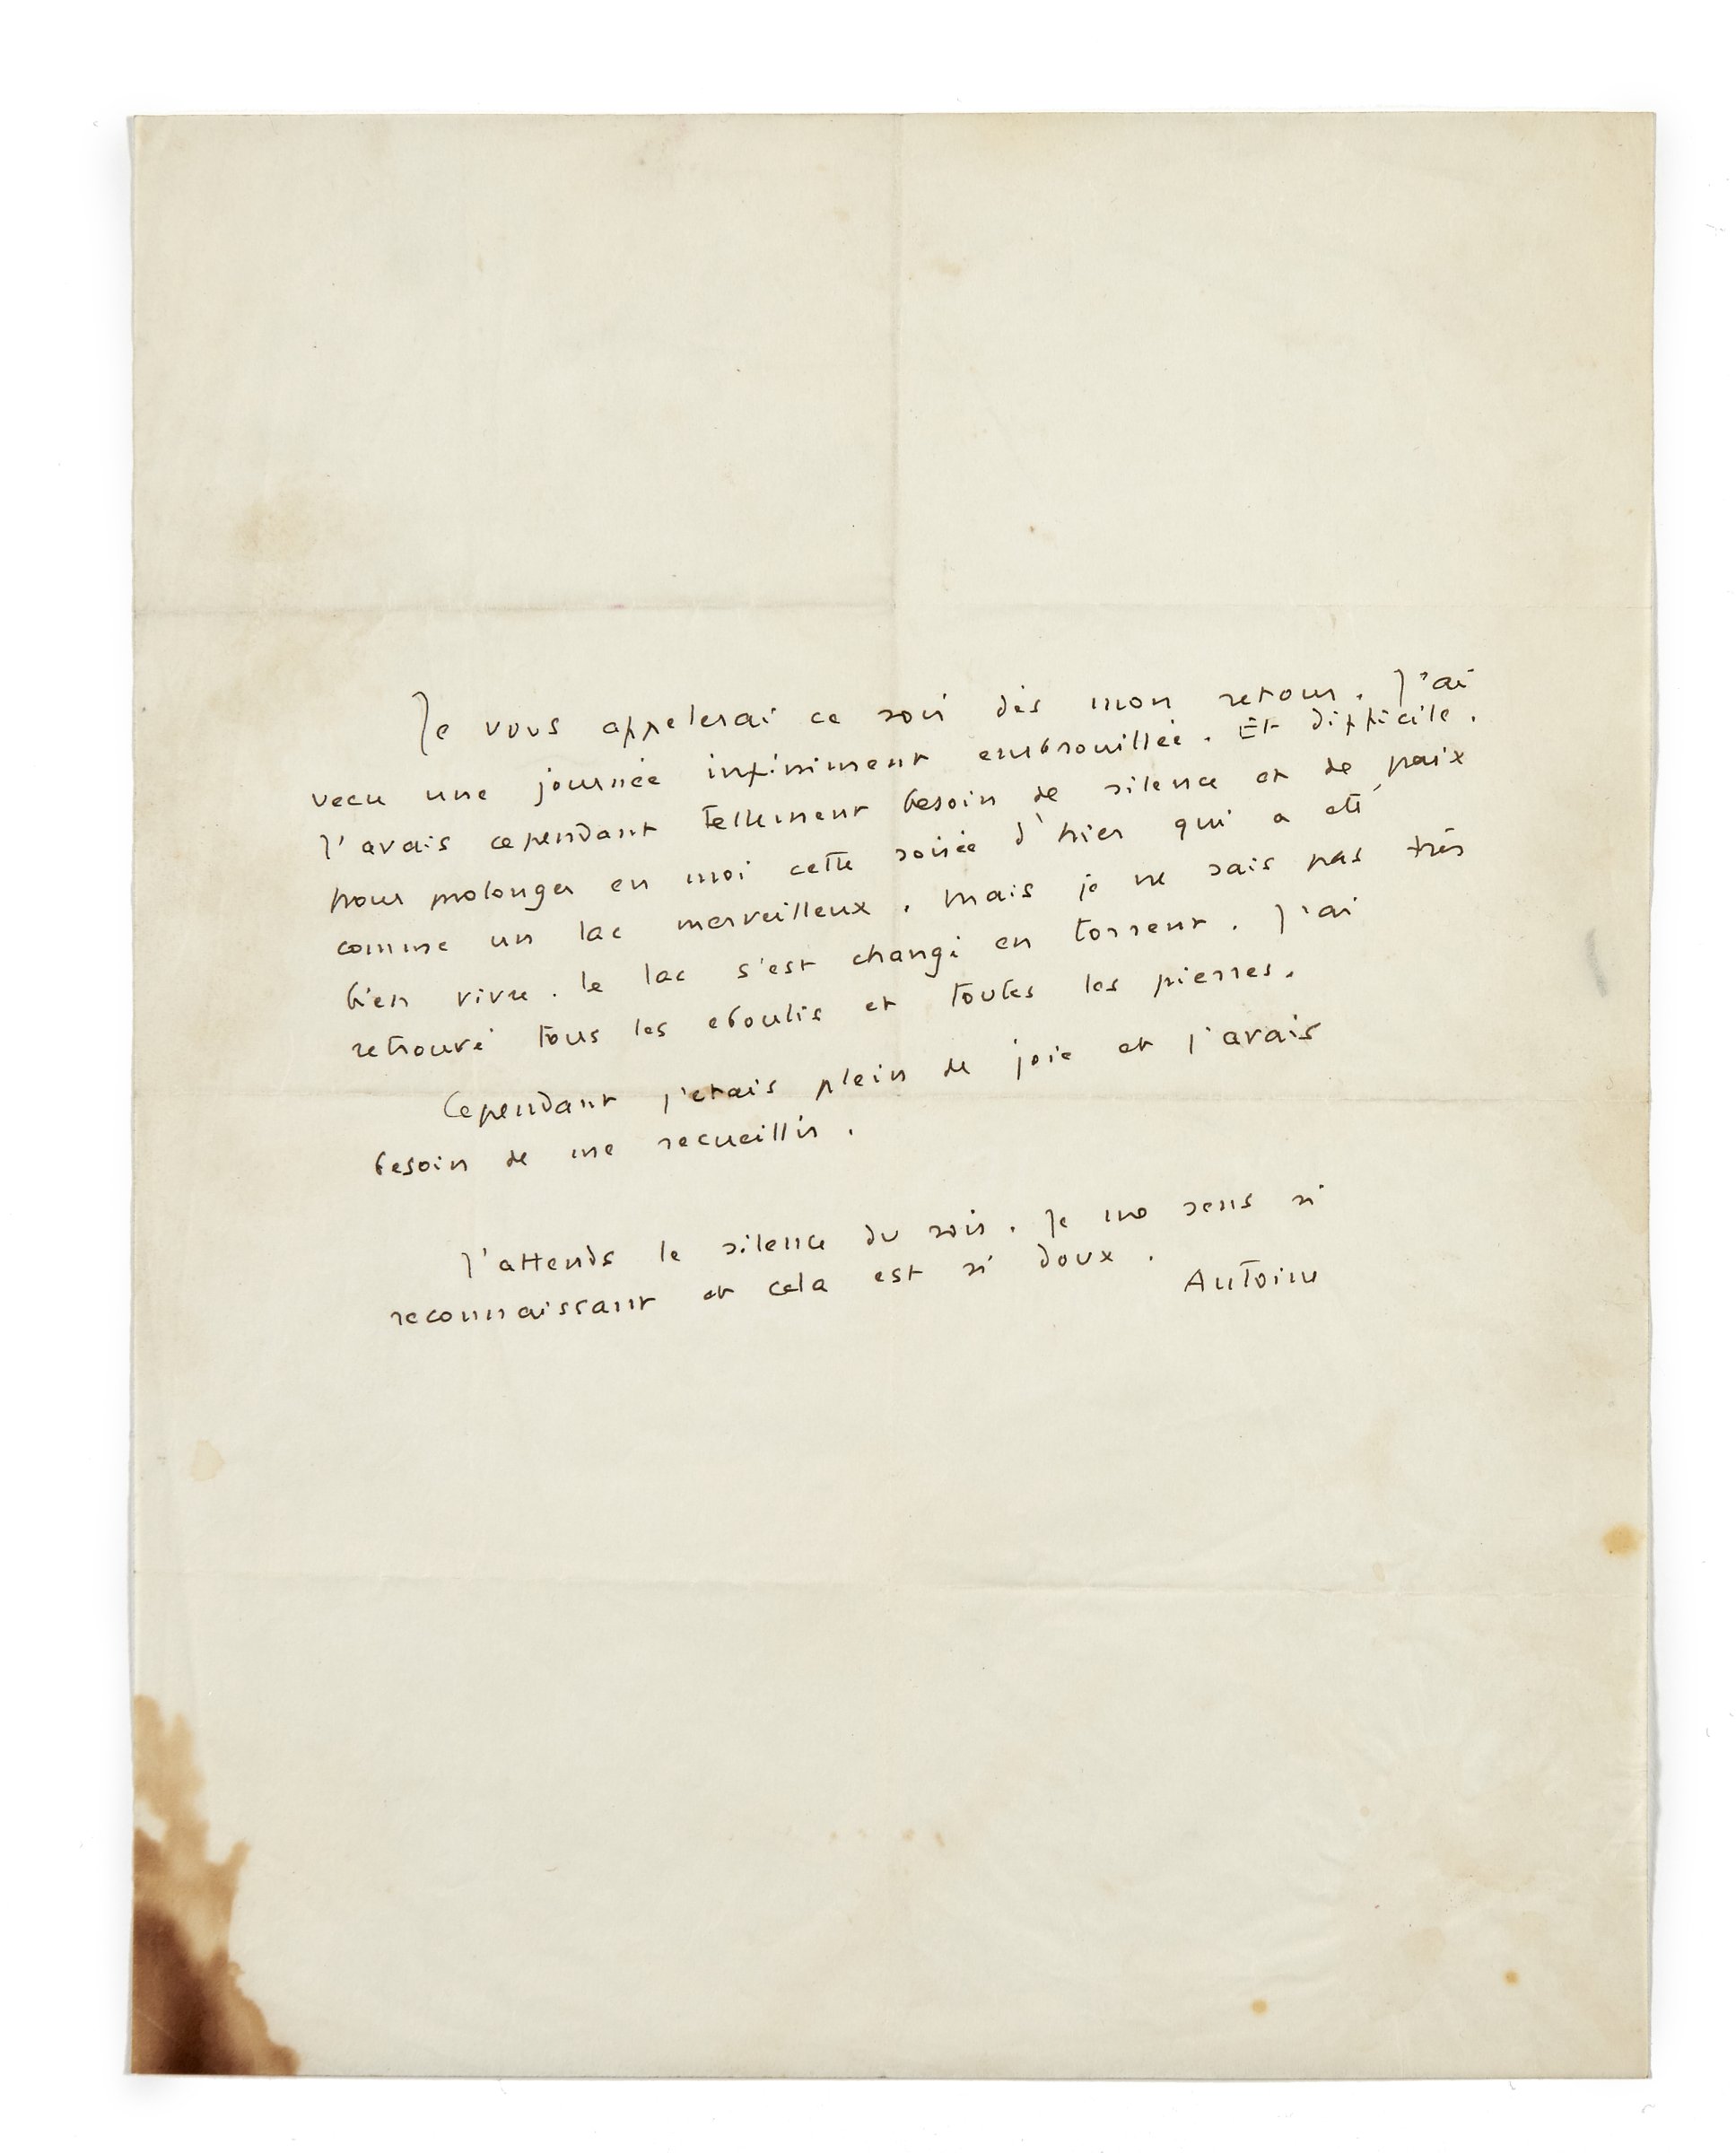 Je vous appelerai ce soir dès mon retour. J'ai
vecu une journée infiniment embrouillée. Et difficile.
J'avais cependant tellement besoin de silence et de paix
pour prolonger en moi cette soirée d'hier qui a été
comme un lac merveilleux. Mais je ne sais pas très
bien vivre. Le lac s'est changé en torrent. J'ai
retrouvé tous les eboulis et toutes les pierres.
Cependant j'etais plein de joie et j'avais
besoin de me recueillir.
J'attends le silence du soir. Je me sens si
reconnaissant et cela est si doux.
Antoine